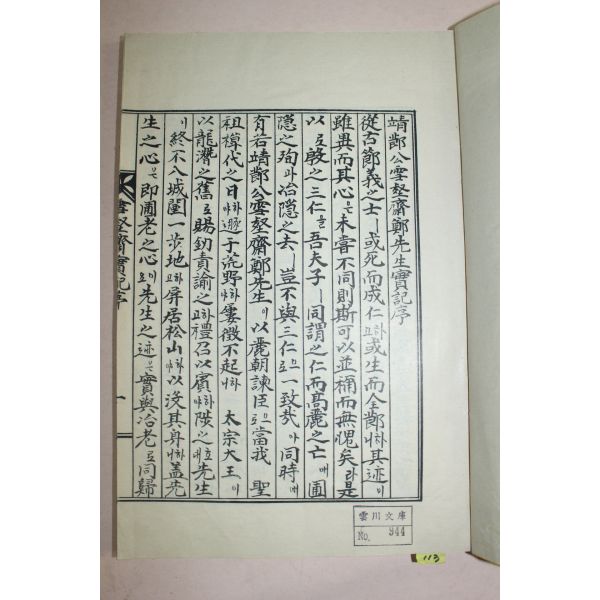 靖節公雪壑齋鄭先生實記序
從古節義之士ㅣ或死而成仁고하或生而全節하其迹이
雖異而其心은未嘗不同則斯可以並稱而無愧矣라是
以로殷之三仁을吾夫子ㅣ同謂之仁而高麗之亡애圃
隱之殉과冶隱之去ㅣ豈不與三仁으로一致哉아同時에
有若靖節公雪壑齋鄭先生이以麗朝諫臣으로當我 聖
祖禪代之日하야遯于荒野하야屢徵不起하니 太宗大王이
以龍潛之舊로賜勅責諭之하고禮召以賓하야陟之호대先生
이終不入城闉一步地하고屏居松山하야以沒其身하니盖先
生之心은即圃老之心이로先生之迹은實與冶老로同歸
雪壑齋實記序
一
雲川文庫
No. 944
113